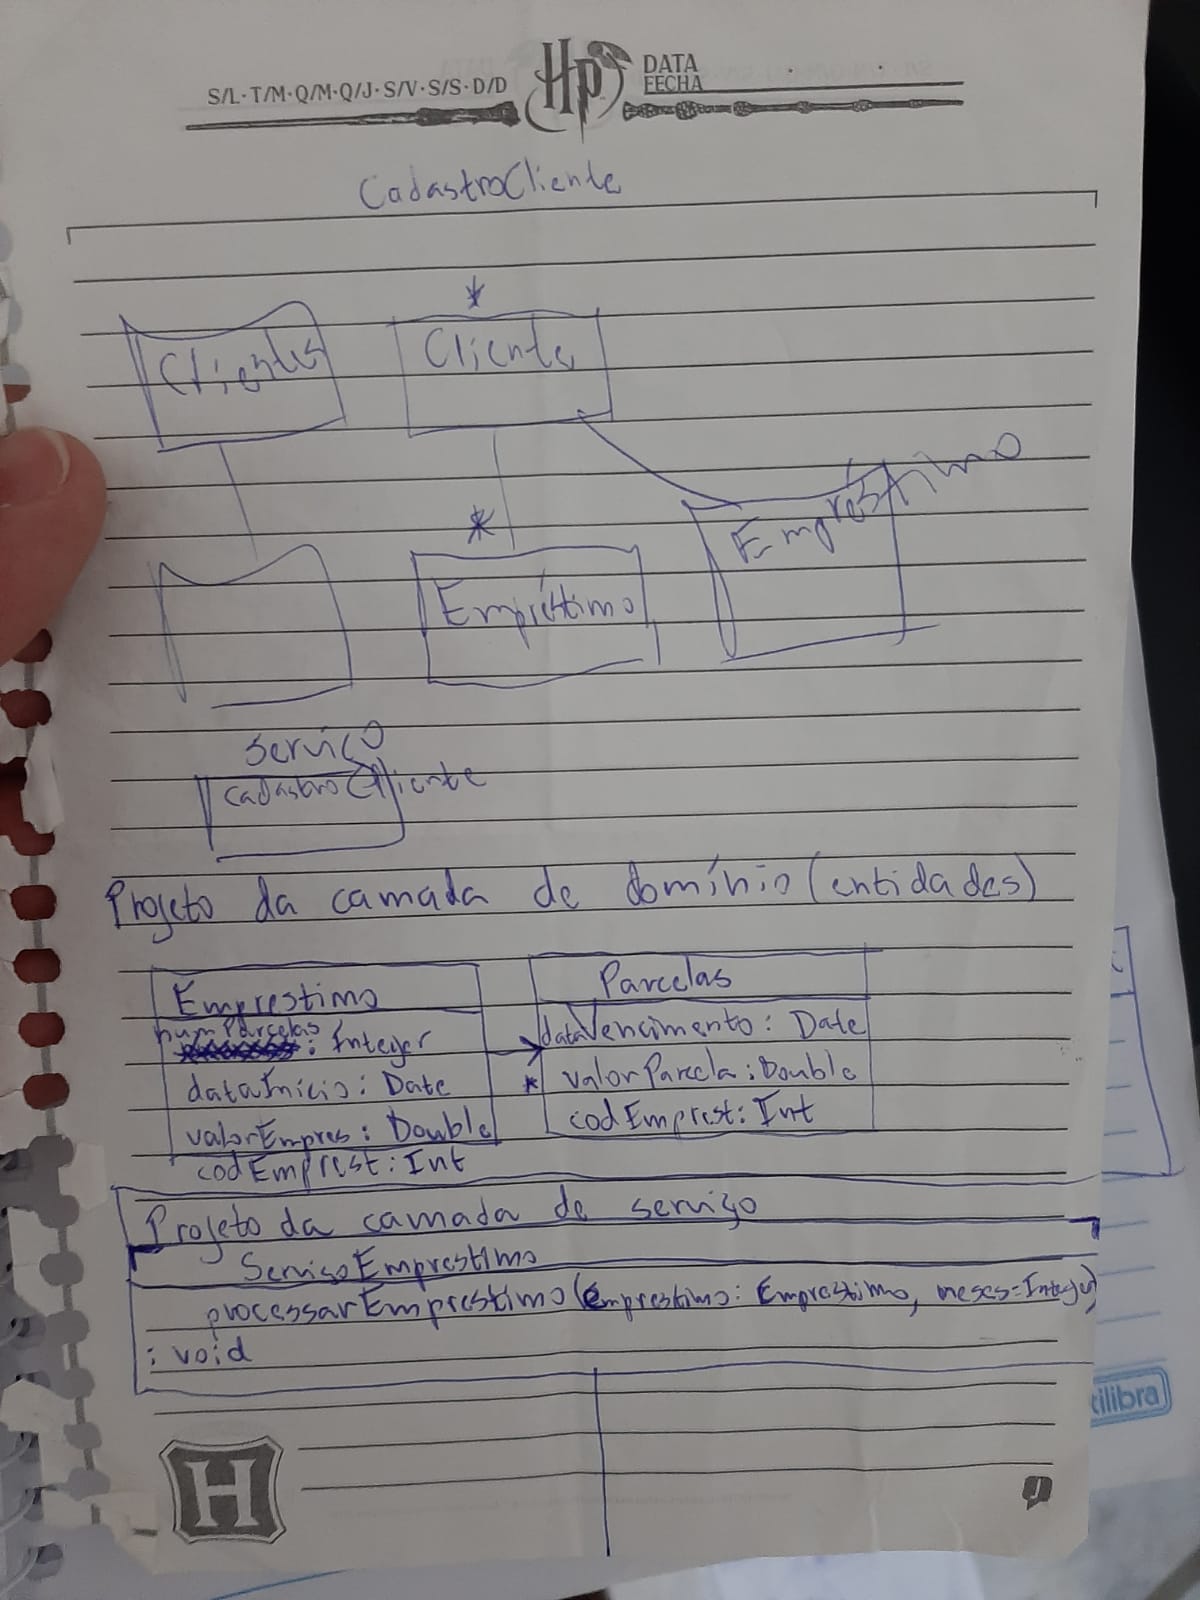 S/L·T/M·Q/M·Q/J·S/V·S/S·D/D
HP
DATA
FECHA
CadastroCliente
*
Clientes
Cliente
*
Empréstimo
Empréstimo
Serviço
CadastroCliente
Projeto da camada de domínio (entidades)
Emprestimo
numParcelas
: Integer
dataInício: Date
valorEmpres: Double
codEmprest: Int
Parcelas
dataVencimento: Date
* valorParcela: Double
codEmprest: Int
Projeto da camada de serviço
ServiçoEmprestimo
processarEmprestimo(emprestimo: Emprestimo, meses=Integer)
: void
tilibra
H